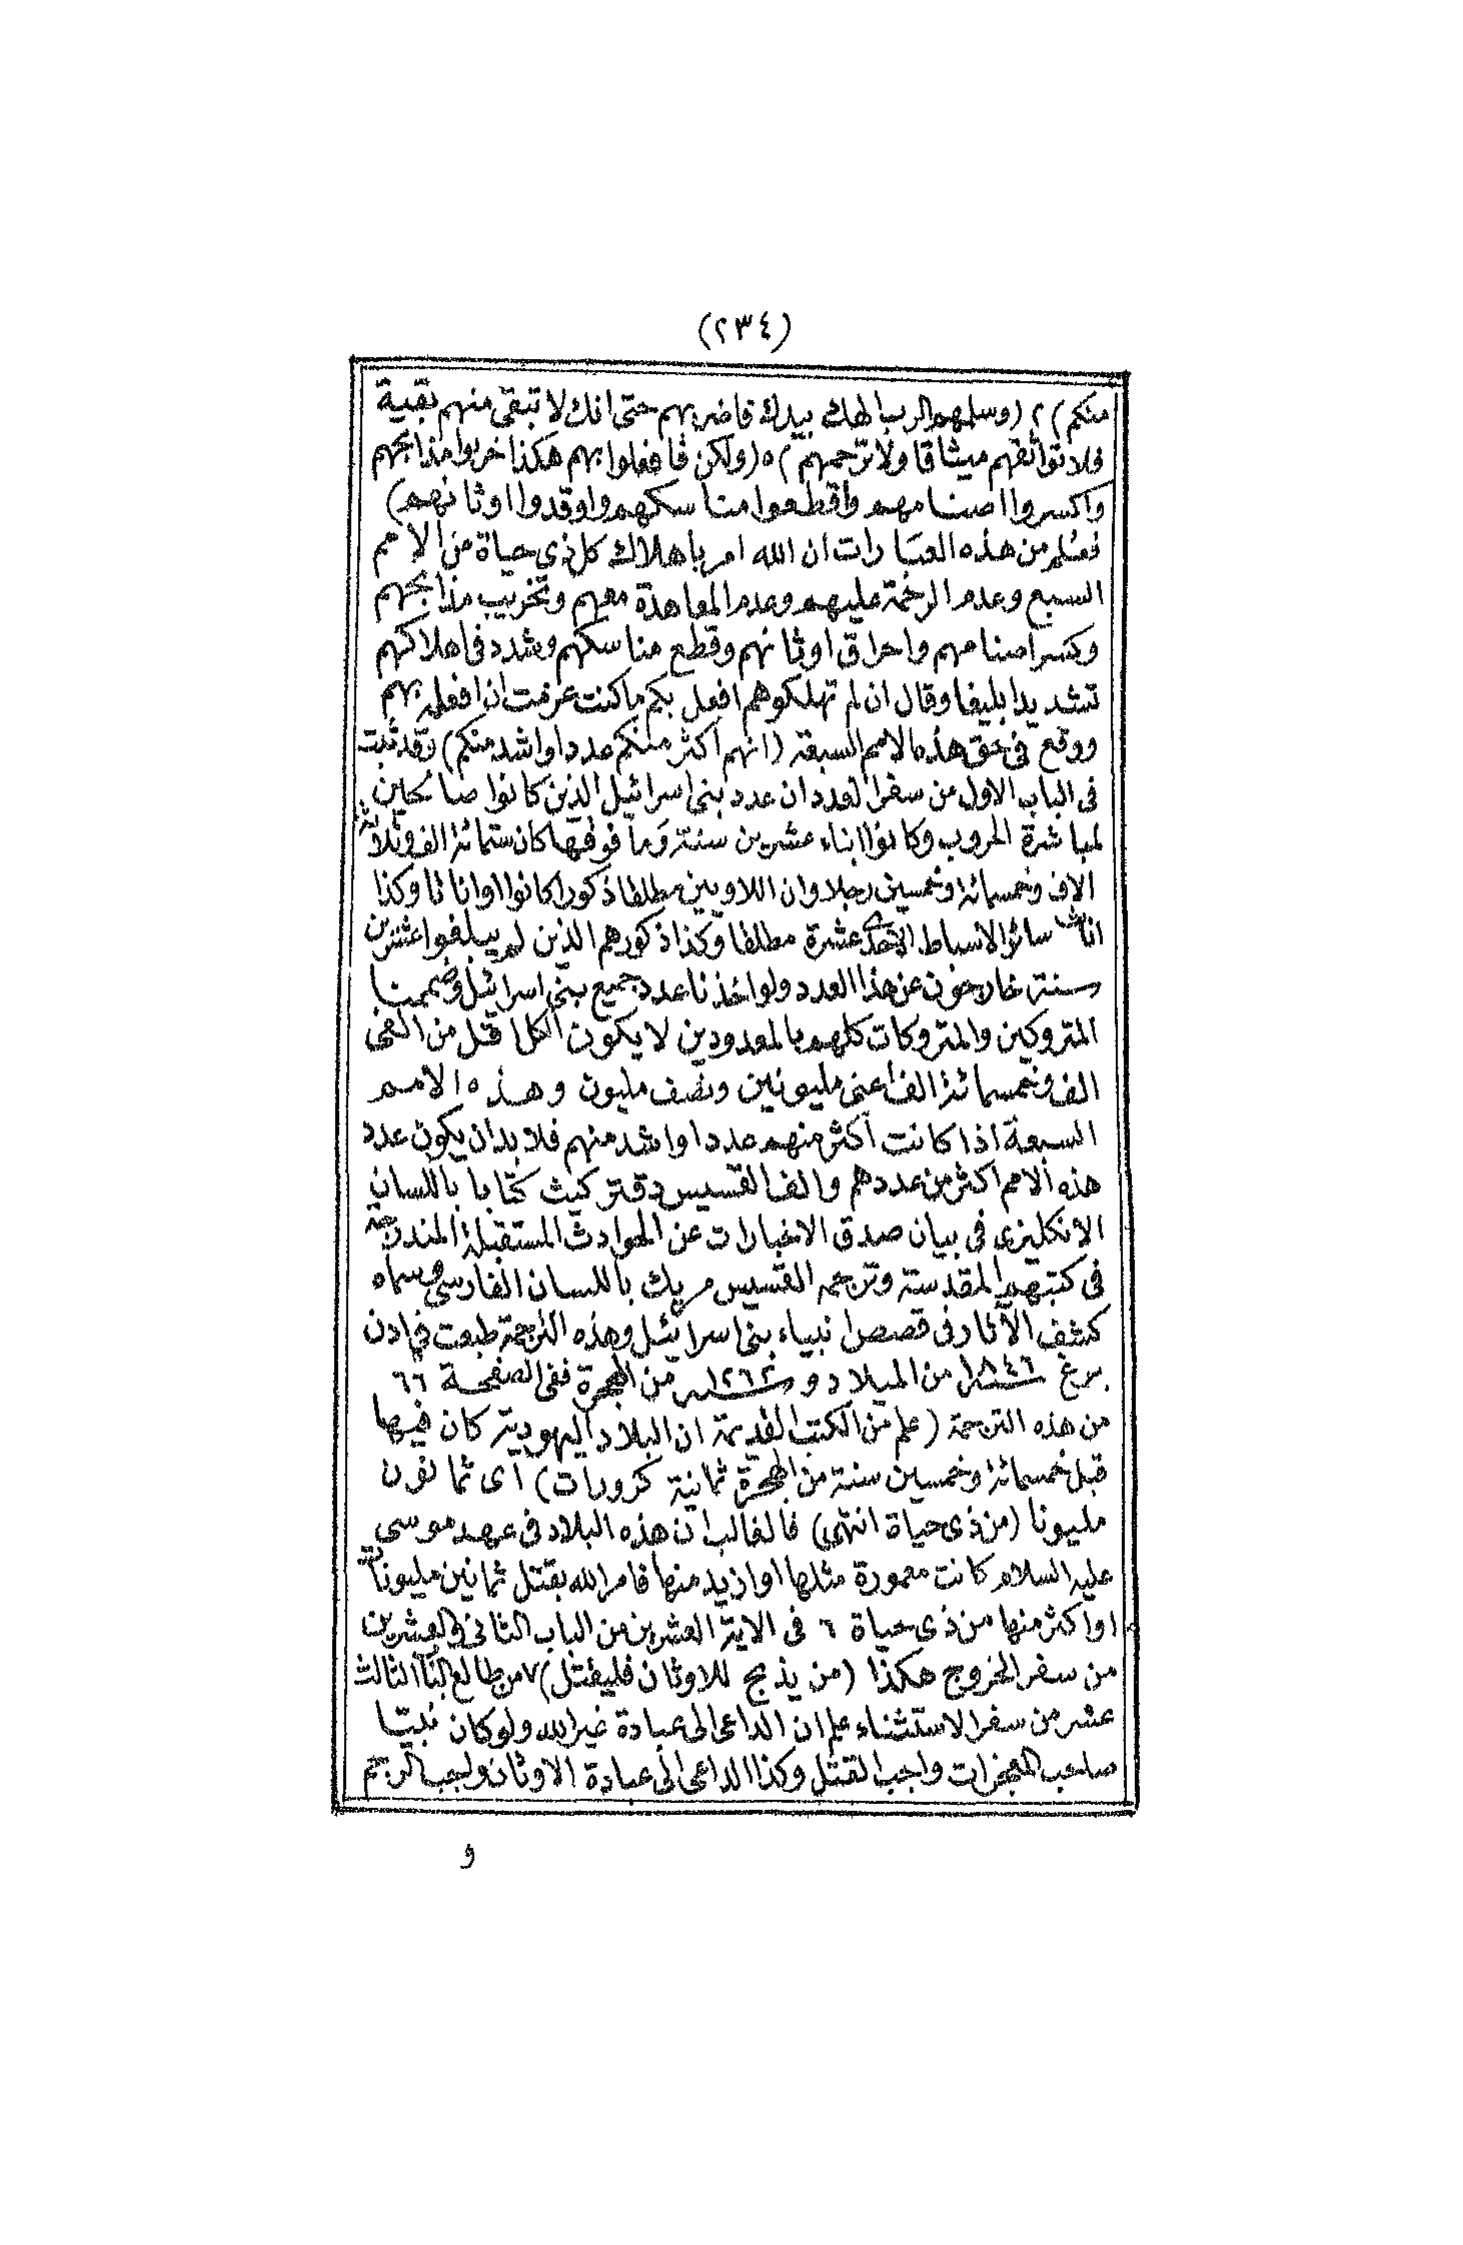 (٢٣٤)
منكم) ٢ (وسلمهم الرب الهك بيدك فاضربهم حتى انك لا تبقى منهم بقية
فلا تواثقهم ميثاقا ولا ترحمهم) ٥ (ولكن فافعلوا بهم هكذا خربوا مذابحهم
واكسروا اصنامهم واقطعوا مناسكهم واوقدوا اوثانهم)
فعُلم من هذه العبارات ان الله امر باهلاك كل ذى حياة من الامم
السبع وعدم الرحمة عليهم وعدم المعاهدة معهم وتخريب مذابحهم
وكسر اصنامهم واحراق اوثانهم وقطع مناسكهم وشدد فى اهلاكهم
تشديدا بليغا وقال ان لم تهلكوهم افعل بكم ما كنت عزمت ان افعله بهم
ووقع فى حق هذه الامم السبعة (انهم اكثر منكم عددا واشد منكم) وقد ثبت
فى الباب الاول من سفر العدد ان عدد بنى اسرائيل الذين كانوا صالحين
لمباشرة الحروب وكانوا ابناء عشرين سنة وما فوقها كان ستمائة الف وثلاثة
الاف وخمسمائة وخمسين رجلا وان اللاويين مطلقا ذكورا كانوا او اناثا وكذا
اناث سائر الاسباط الاحدى عشرة مطلقا وكذا ذكورهم الذين لم يبلغوا عشرين
سنة خارجون عن هذا العدد ولو اخذنا عدد جميع بنى اسرائيل وضممنا
المتروكين والمتروكات كلهم بالمعدودين لا يكون الكل اقل من الفى
الف وخمسمائة الف اعنى مليونين ونصف مليون وهذه الامم
السبعة اذا كانت اكثر منهم عددا واشد منهم فلا بد ان يكون عدد
هذه الامم اكثر من عددهم والف القسيس دقتر كيث كتابا باللسان
الانكليزى فى بيان صدق الاخبارات عن الحوادث المستقبلة المندرجة
فى كتبهم المقدسة وترجمه القسيس مريك باللسان الفارسى وسماه
كشف الآثار فى قصص انبياء بنى اسرائيل وهذه الترجمة طبعت فى ادن
برغ سنة ١٨٤٦ من الميلاد و سنة ١٢٦٢ من الهجرة ففى الصفحة ٦٦
من هذه الترجمة (علم من الكتب القديمة ان البلاد اليهودية كان فيها
قبل خمسمائة وخمسين سنة من الهجرة ثمانية كرورات) اى ثمانون
مليونا (من ذى حياة انتهى) فالغالب ان هذه البلاد فى عهد موسى
عليه السلام كانت معمورة مثلها او ازيد منها فامر الله بقتل ثمانين مليونا
او اكثر منها من ذى حياة ٦ فى الاية العشرين من الباب الثانى والعشرين
من سفر الخروج هكذا (من يذبح للاوثان فليقتل) ٧ من طالع الباب الثالث
عشر من سفر الاستثناء علم ان الداعى الى عبادة غير الله ولو كان نبيا
صاحب المعجزات واجب القتل وكذا الداعى الى عبادة الاوثان واجب الرجم
و